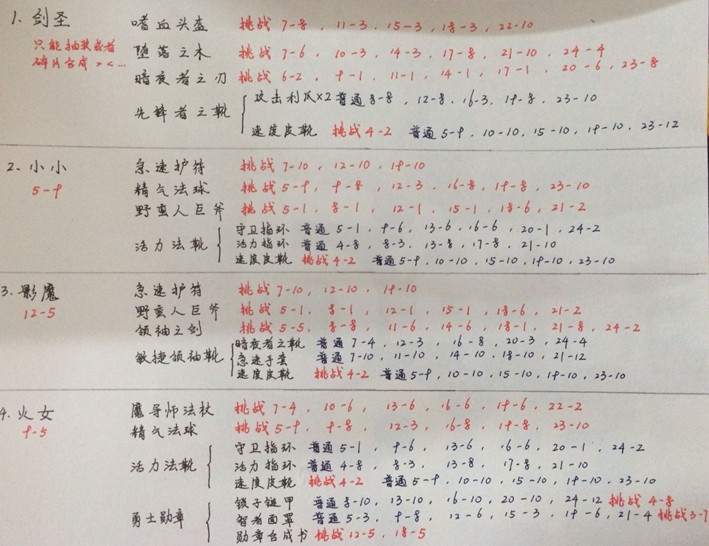 1. 剑圣 嗜血头盔 挑战 7-8, 11-3, 15-3, 18-3, 22-10
只能抽奖或者 堕落之木 挑战 7-6, 10-3, 14-3, 17-8, 21-10, 24-4
碎片合成 >< … 暗夜者之刃 挑战 6-2, 9-1, 11-1, 14-1, 17-1, 20-6, 23-8
先锋者之靴 攻击利爪×2 普通 8-8, 12-8, 16-3, 19-8, 23-10
速度皮靴 挑战 4-2 普通 5-9, 10-10, 15-10, 19-10, 23-12
2、小小 急速护符 挑战 7-10, 12-10, 19-10
5-9 精气法球 挑战 5-9, 9-8, 12-3, 16-8, 19-8, 23-10
野蛮人巨斧 挑战 5-1, 8-1, 12-1, 15-1, 18-6, 21-2
活力法靴 守卫指环 普通 5-1, 9-6, 13-6, 16-6, 20-1, 24-2
活力指环 普通 4-8, 8-3, 13-8, 17-8, 21-10
速度皮靴 挑战 4-2 普通 5-9, 10-10, 15-10, 19-10, 23-10
3. 影魔 急速护符 挑战 7-10, 12-10, 19-10
12-5 野蛮人巨斧 挑战 5-1, 8-1, 12-1, 15-1, 18-6, 21-2
领袖之剑 挑战 5-5, 8-8, 11-6, 14-6, 18-1, 21-8, 24-2
敏捷领袖靴 暗夜者之靴 普通 7-4, 12-3, 16-8, 20-3, 24-4
急速手套 普通 7-10, 11-10, 14-10, 18-10, 21-12
速度皮靴 挑战 4-2 普通 5-9, 10-10, 15-10, 19-10, 23-10
4. 火女 魔导师法杖 挑战 7-4, 10-6, 13-6, 16-6, 19-6, 22-2
9-5 精气法球 挑战 5-9, 9-8, 12-3, 16-8, 19-8, 23-10
守卫指环 普通 5-1, 9-6, 13-6, 16-6, 20-1, 24-2
活力法靴 活力指环 普通 4-8, 8-3, 13-8, 17-8, 21-10
速度皮靴 挑战 4-2 普通 5-9, 10-10, 15-10, 19-10, 23-10
锁子链甲 普通 8-10, 13-10, 16-10, 20-10, 24-12 挑战 4-8
勇士勋章 智者面罩 普通 5-3, 9-8, 12-6, 15-3, 19-6, 21-4 挑战 3-7
勋章合成书 挑战 12-5, 18-5